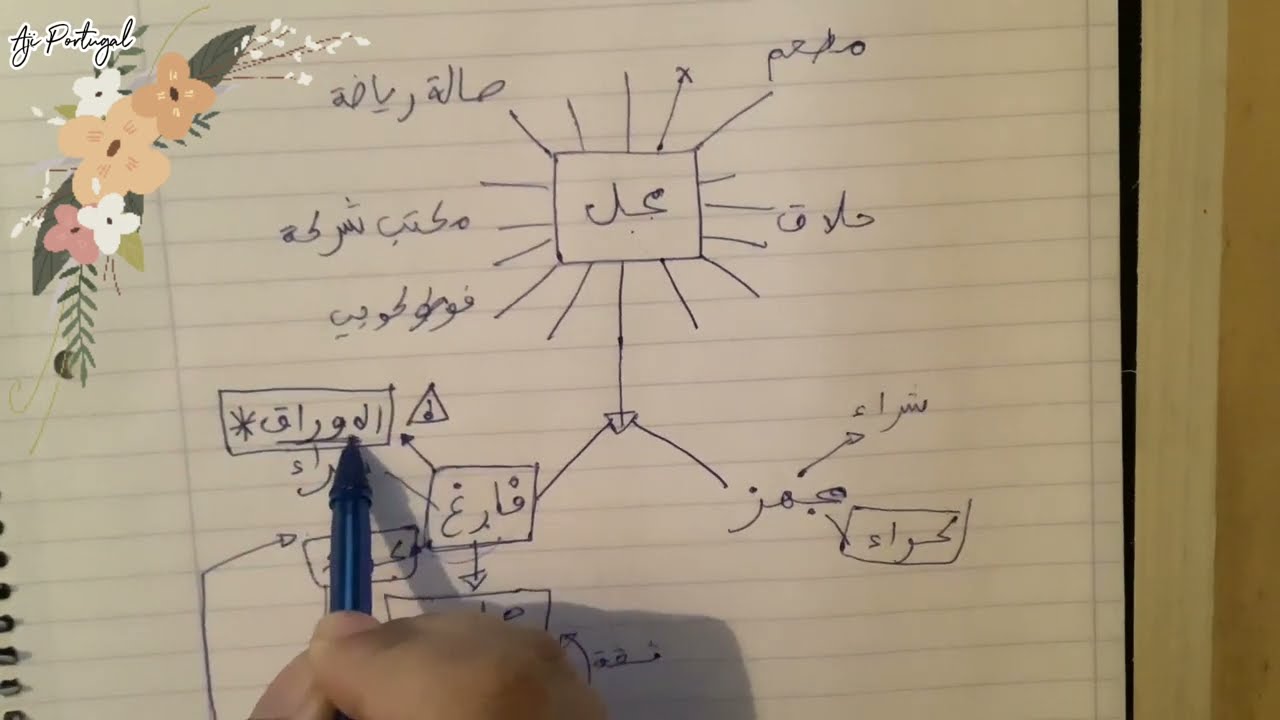 Aji Portugal
مطعم
صالة رياضة
محل
حلاق
مكتب شركة
فوطوكوبي
شراء
الاوراق *
شراء
فارغ
مجهز
كراء